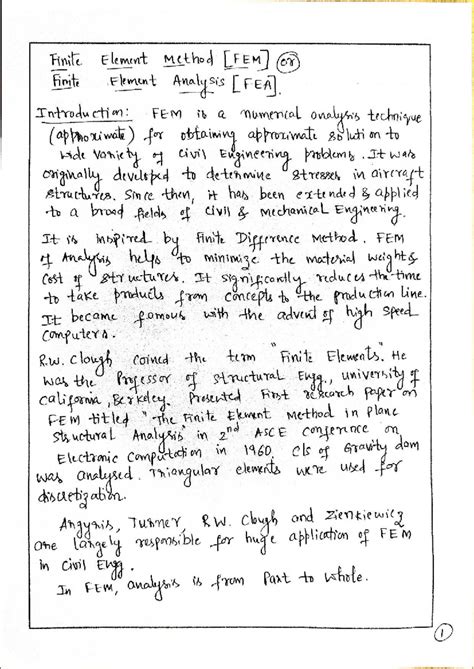 Finite Element Method [FEM] or
Finite Element Analysis [FEA].
Introduction: FEM is a numerical analysis technique
(approximate) for obtaining approximate solution to
wide variety of Civil Engineering problems. It was
originally developed to determine stresses in aircraft
structures. Since then, it has been extended & applied
to a broad fields of Civil & Mechanical Engineering.
It is inspired by Finite Difference Method. FEM
of Analysis helps to minimize the material weight &
cost of structures. It significantly reduces the time
to take products from concepts to the production line.
It became famous with the advent of high speed
computers.
R.W. Clough coined the term "Finite Elements". He
was the Professor of Structural Engg., university of
California, Berkeley. Presented First research Paper on
FEM titled "The Finite Element Method in Plane
Structural Analysis in 2nd ASCE conference on
Electronic Computation in 1960, C/s of Gravity dam
was analysed. Triangular elements were used for
discretization.
Argyris, Turner, R.W. Clough and Zienkiewicz
are largely responsible for huge application of FEM
in Civil Engg.
In FEM, analysis is from Part to whole.
1